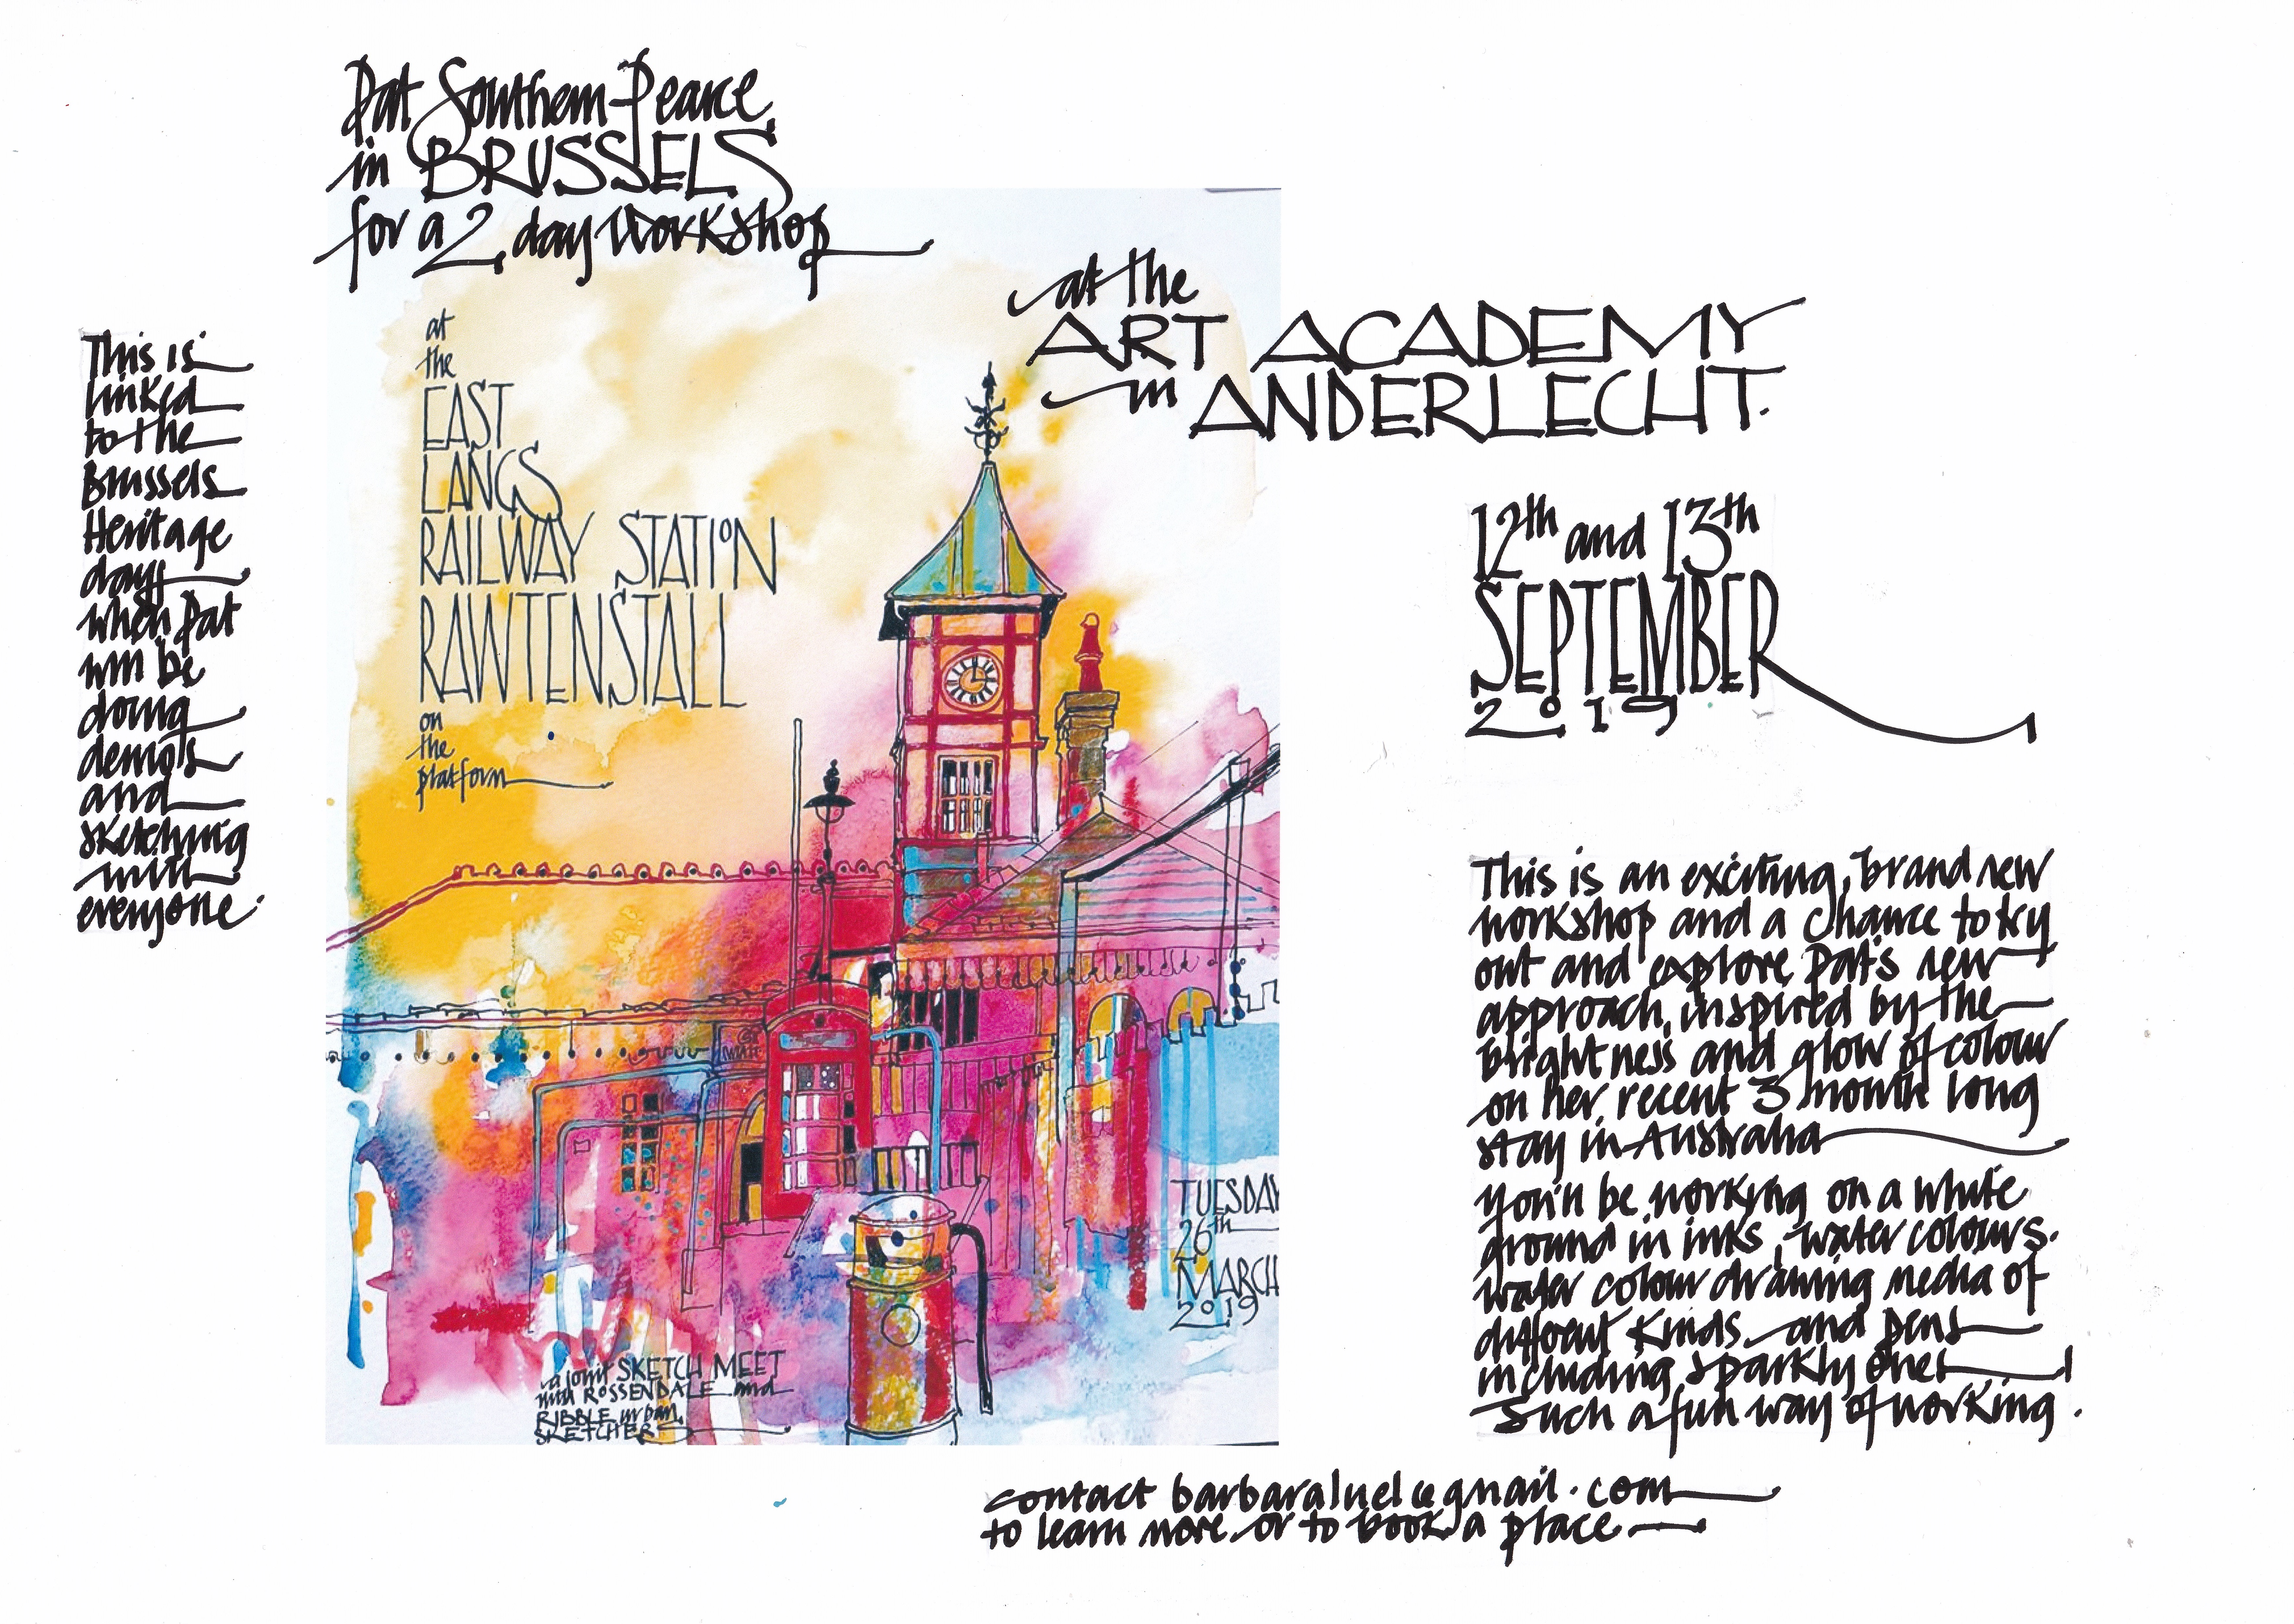 Pat Southern-Pearce
in BRUSSELS
for a 2 day workshop
at the
ART ACADEMY
in ANDERLECHT.
This is
linked
to the
Brussels
Heritage
days
when Pat
will be
doing
demo's
and
sketching
with
everyone.
at
the
EAST
LANCS
RAILWAY STATION
RAWTENSTALL
on
the
platform
TUESDAY
26th
MARCH
2019
a joint SKETCH MEET
with ROSSENDALE and
RIBBLE urban
SKETCHERS
12th and 13th
SEPTEMBER
2019
This is an exciting, brand new
workshop and a chance to try
out and explore Pat's new
approach, inspired by the
brightness and glow of colour
on her recent 3 month long
stay in Australia
You'll be working on a white
ground in inks, water colours.
water colour drawing media of
different kinds and pens
including sparkly ones
Such a fun way of working.
contact barbaraluel@gmail.com
to learn more or to book a place